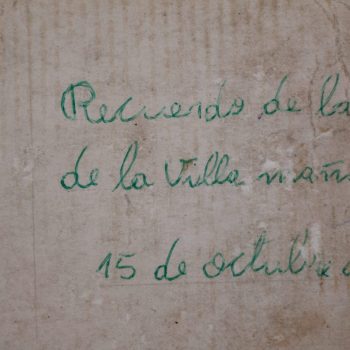 Recuerdo de la
de la Villa mañ
15 de octubre